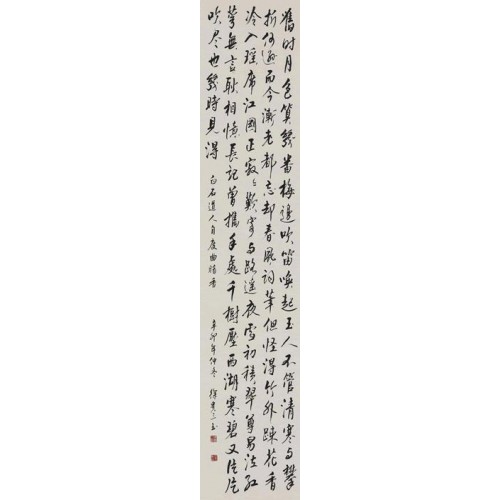 舊時月色算幾番梅邊吹笛喚起玉人不管清寒与攀
折何遜而今漸老都忘却春風詞筆但怪得竹外疎花香
冷入瑶席江國正寂〻歎寄与路遥夜雪初積翠尊易泣紅
萼無言耿相憶長記曾攜手處千樹壓西湖寒碧又片片
吹尽也幾時見得
白石道人自度曲暗香
辛卯年仲冬